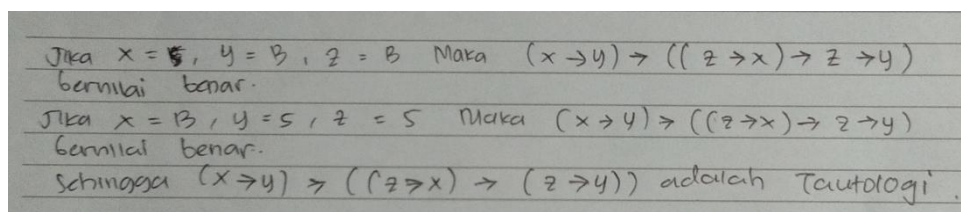 Jika x = S, y = B, z = B Maka (x → y) → ((z → x) → z → y)
bernilai benar.
Jika x = B, y = S, z = S Maka (x → y) → ((z → x) → z → y)
bernilai benar.
Sehingga (x → y) → ((z → x) → (z → y)) adalah Tautologi.